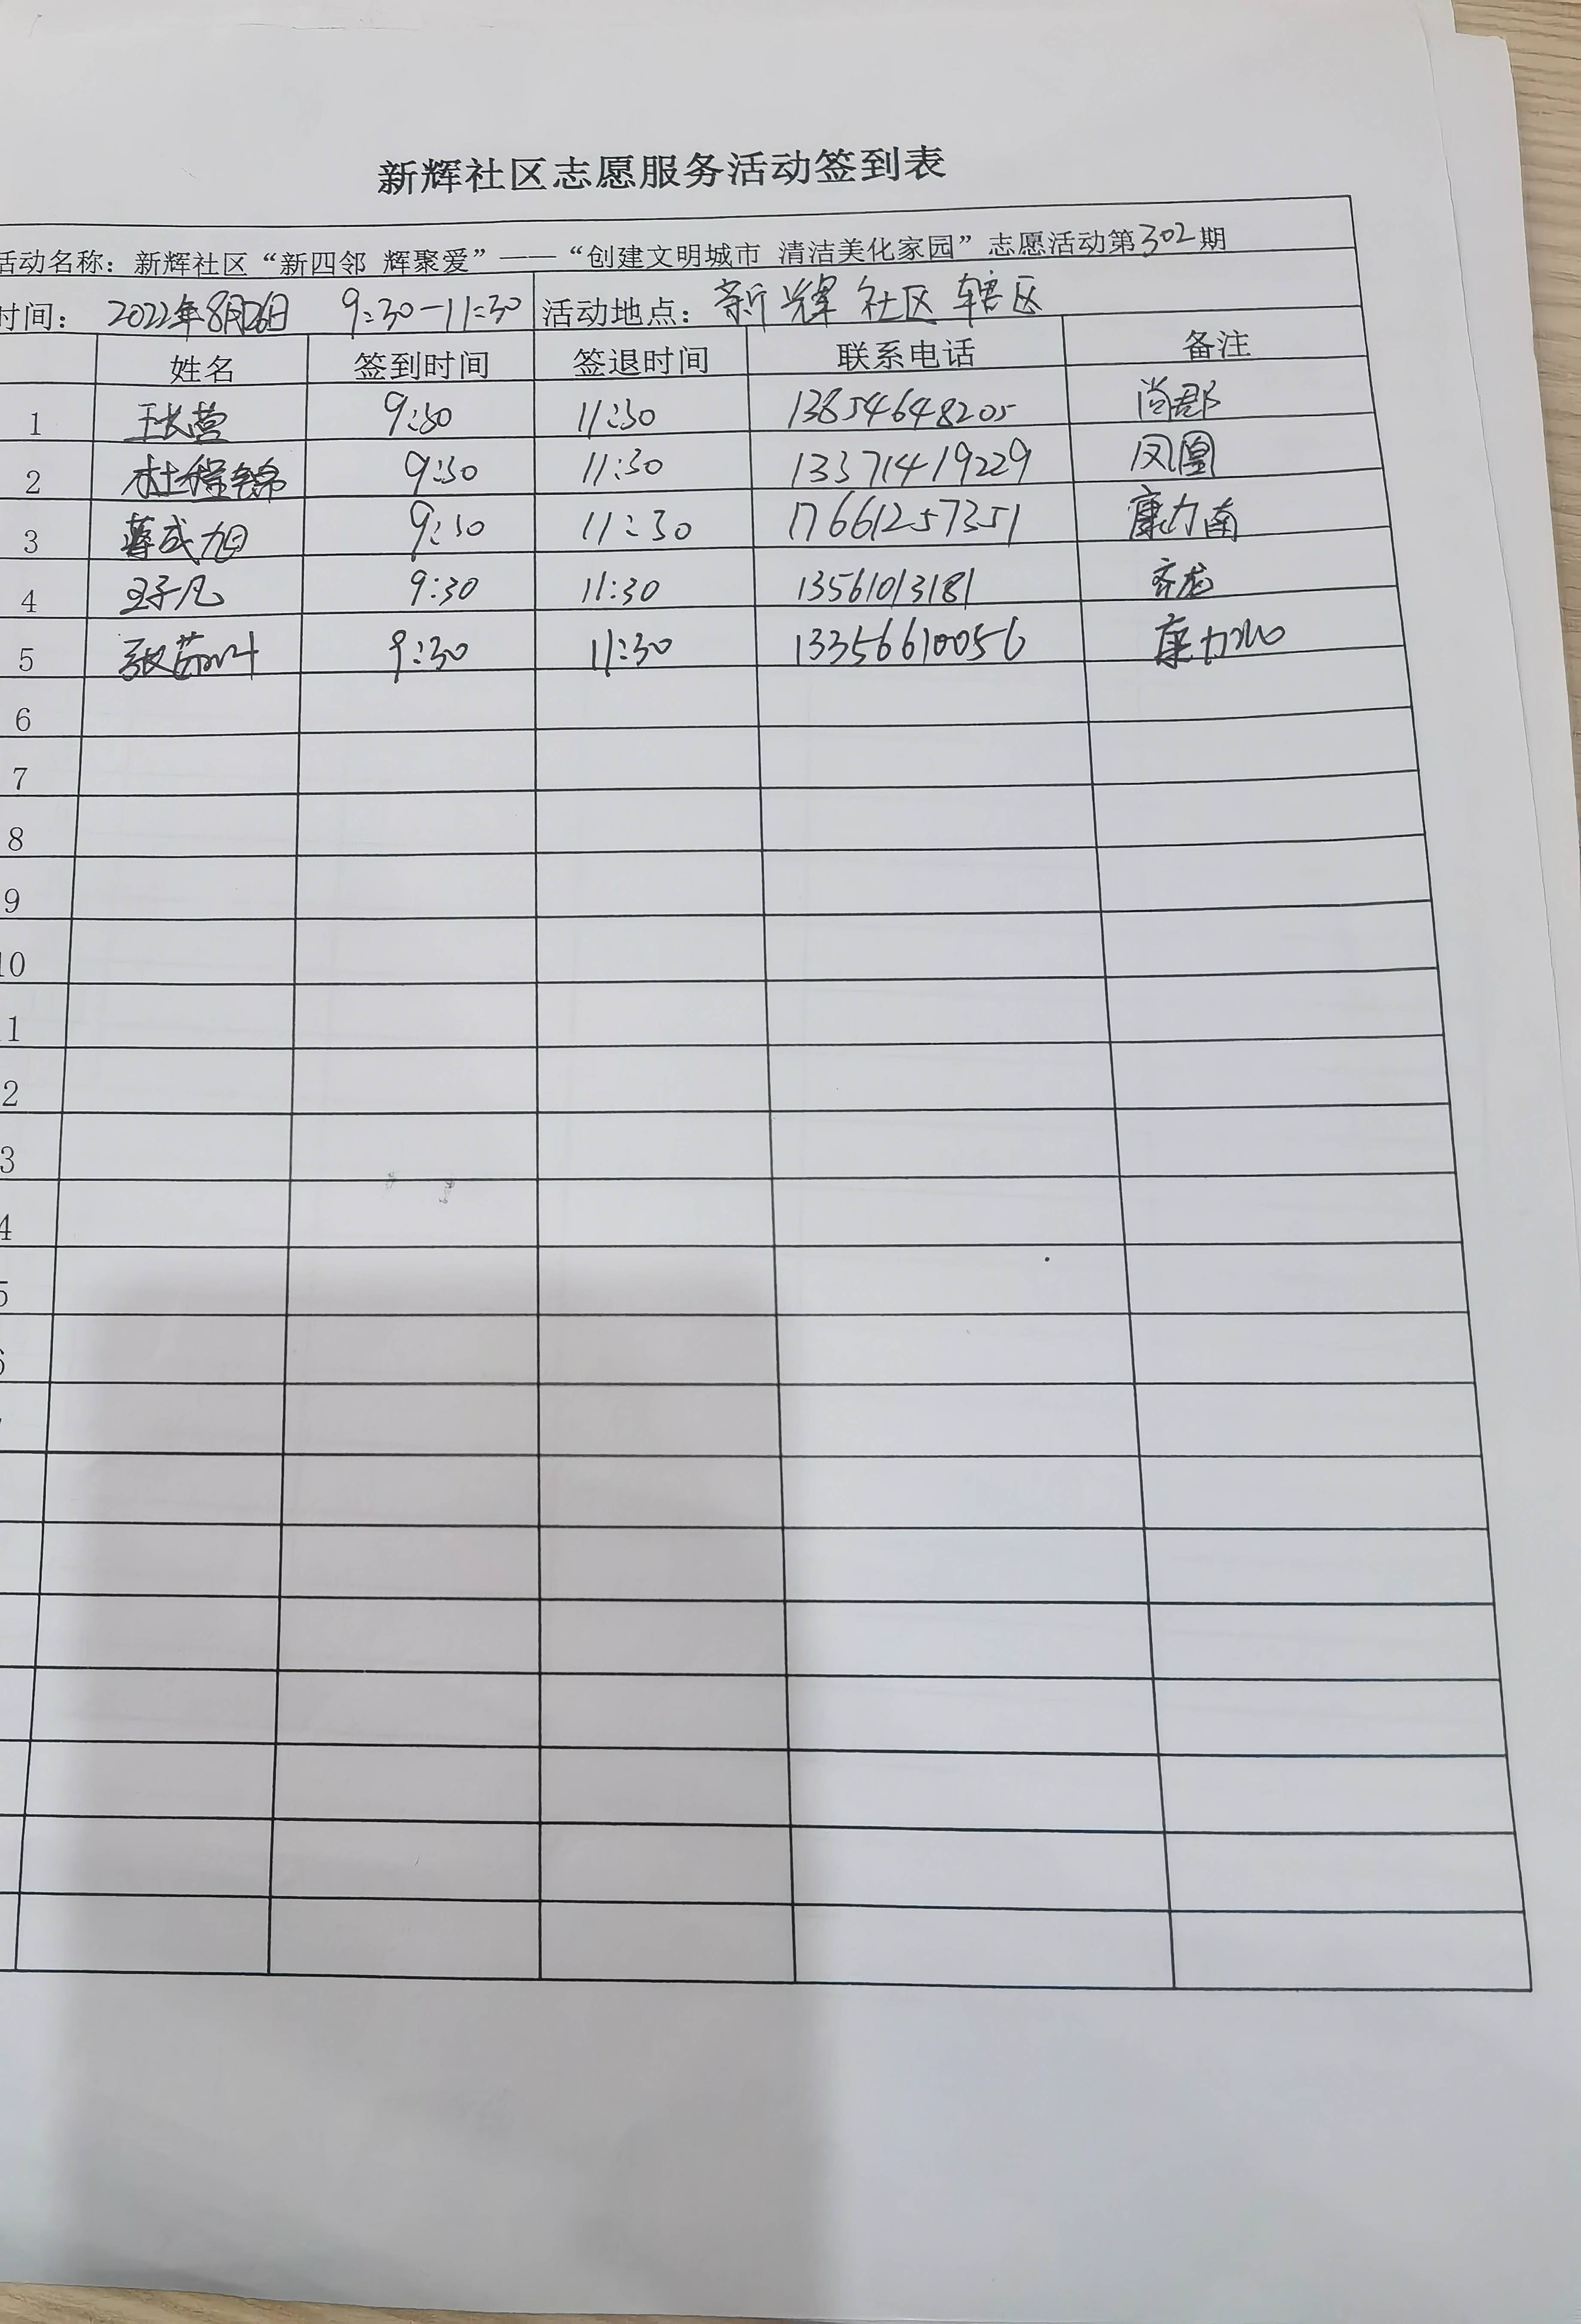 新辉社区志愿服务活动签到表
活动名称：新辉社区“新四邻 辉聚爱”——“创建文明城市 清洁美化家园”志愿活动第302期
时间： 2022年8月26日 9:30-11:30 活动地点：新辉社区辖区
姓名 签到时间 签退时间 联系电话 备注
1 王长营 9:30 11:30 13854648205 尚郡
2 杜程锦 9:30 11:30 13371419229 凤凰
3 成旭 9:30 11:30 17661257351 康力南
4 王子凡 9:30 11:30 13561013181 齐龙
5 张 叶 9:30 11:30 13356610056 康力
6
7
8
9
10
1
2
3
4
5
6